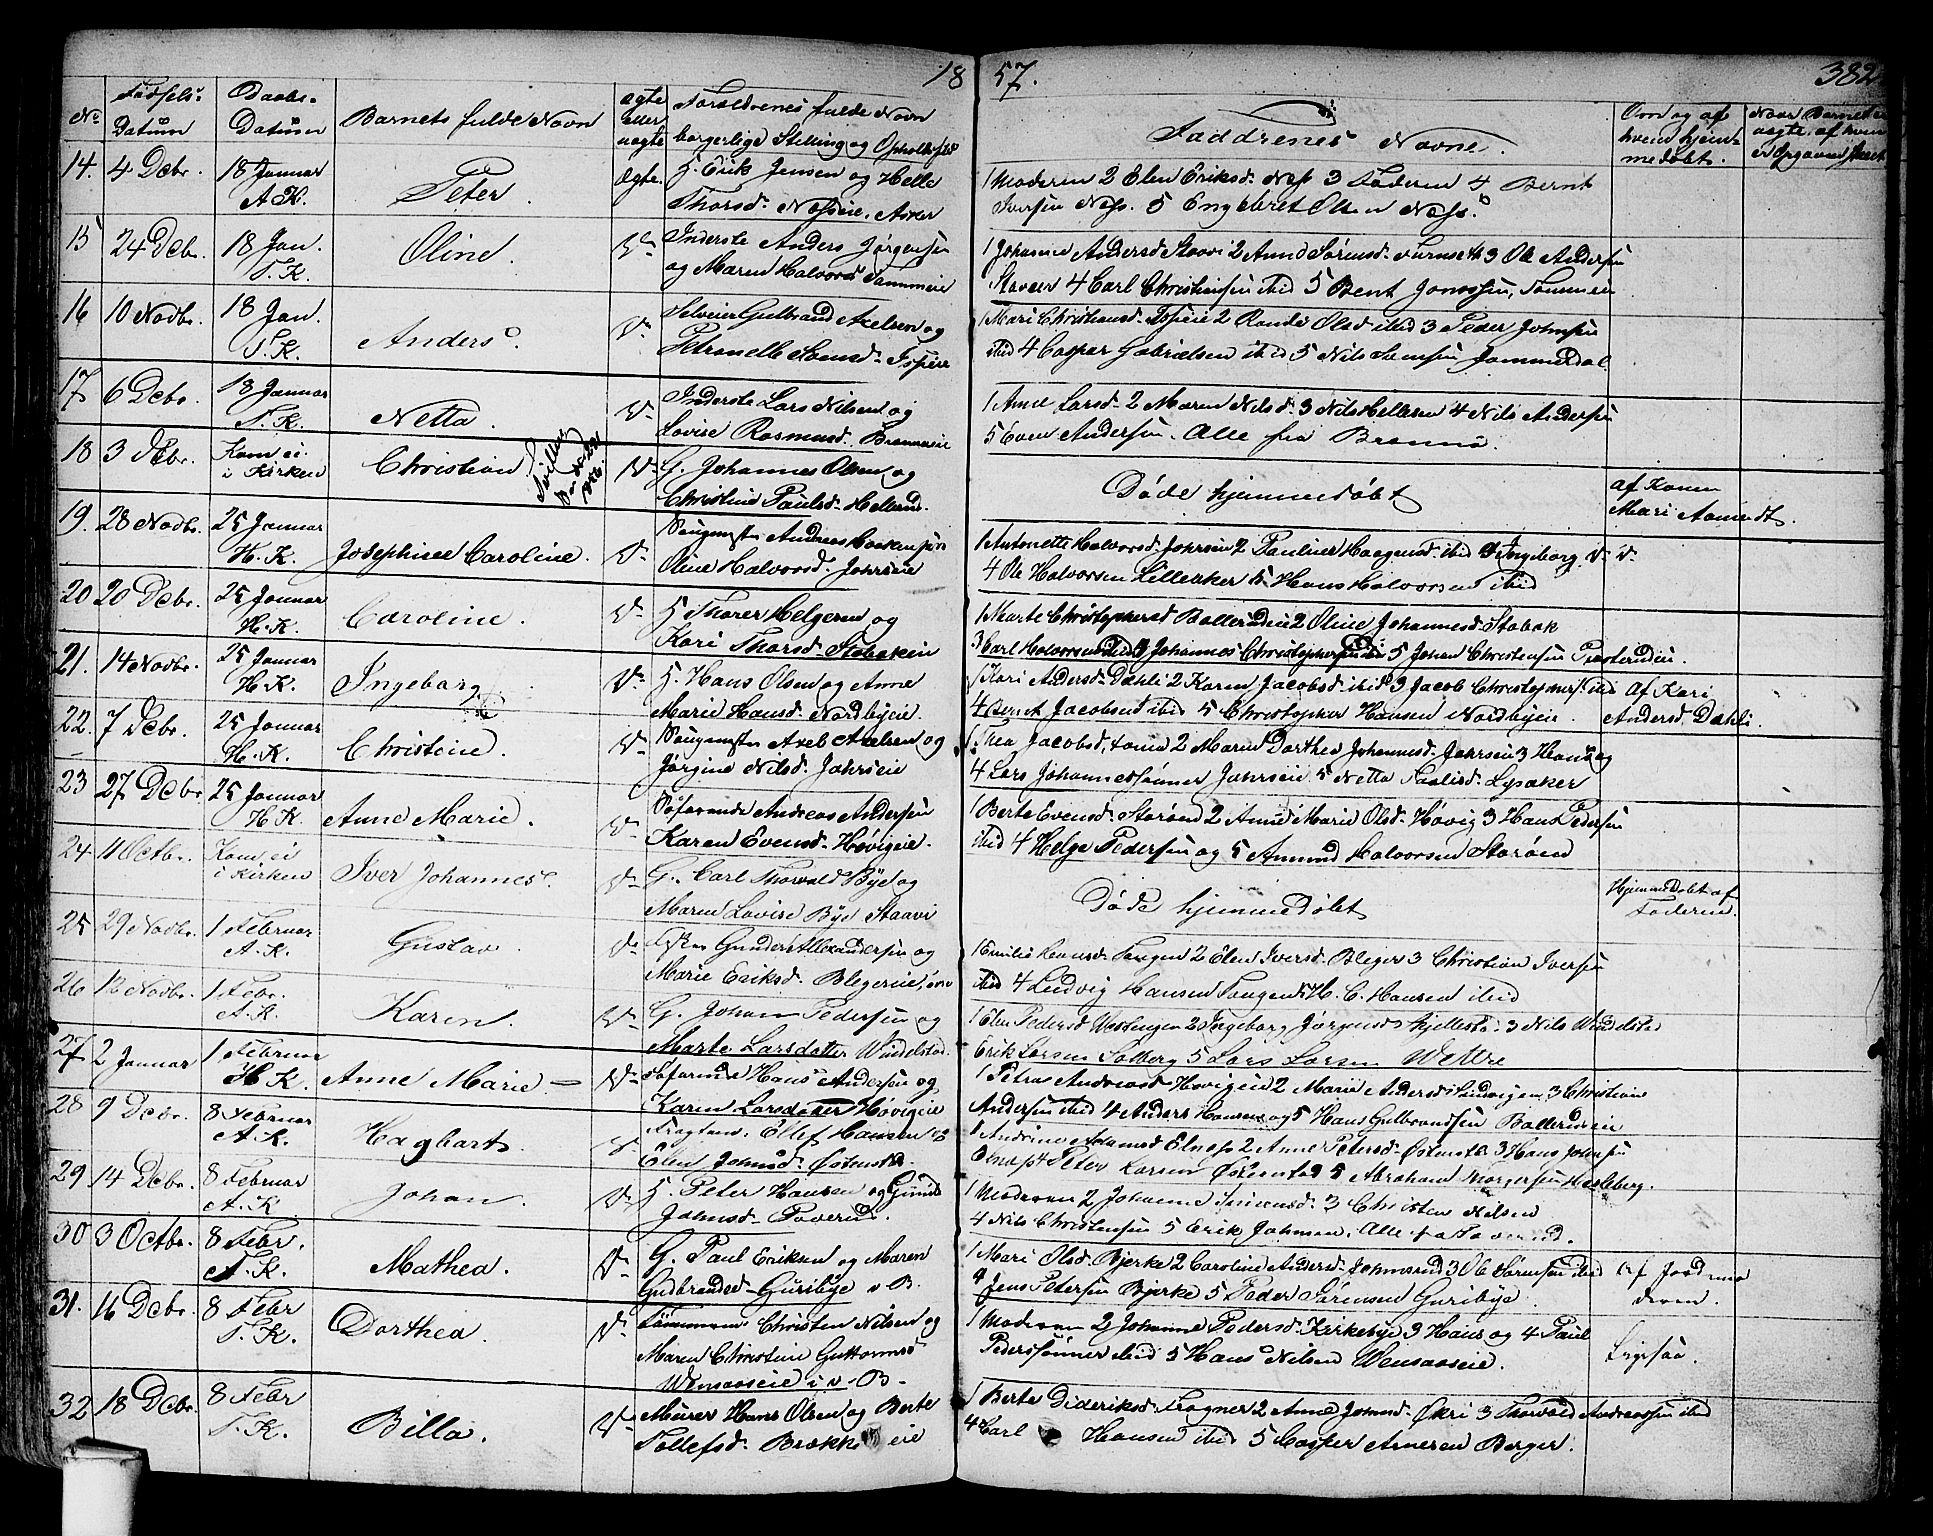 18 57. 382
No Fødsels- Datum Daabs- Datum Barnets fulde Navn ægte eller uægte Forældrenes fulde Navn borgerlige Stilling og Opholdssted
Faddrenes Navne.
Om og af hvem hjemmedøbt. Naar Barnet er uægte, af hvem
14. 4 Dcbr. 18 Januar A.K. Peter. Ægte. H. Erik Jensen og Helle
Thorsd. Asker
1 Moderen 2 Elen Eriksd. Næs 3 Faderen 4 Bernt
Iversen Næss. 5 Engebret Olsen Næss.
15 24 Dcbr. 18 Jan. T.K. Oline. Do Inderste Anders Jørgensen
og Maren Halvorsd
1 Johanne Andersd Staavi 2 Anne Sørensd. 3 Ole Andersen
4 Carl Christensen ibid 5 Bent
16 10 Novbr. 18 Jan. T.K. Anders. Do Selveier Gulbrand Axelsen og
Petronelle
1 Mari Christiansd. 2 Randi Olsd ibid 3 Peder Johnsen
ibid 4 Caspar Gabrielsen ibid 5 Nils Jammerdal
17 6 Dcbr. 18 Januar T.K. Netta. Do Inderste Lars Nilsen og
Lovise Rasmusd.
1 Anne Larsd. 2 Maren Nilsd. 3 Nils Hellesen 4 Nils Andersen
5 Even Andersen. Alle fra
18 3 Dcbr. Kom ei i Kirken Christian Do G. Johannes Olsen og
Christine Paulsd. Hellerud.
Døde hjemmedøbt
af Konen
Mari
19. 28 Novbr. 25 Januar H.K. Josephine Caroline. Do Andreas
Oline Halvorsd. Jahrseie
1 Antonette Halvorsd. Jahrseie 2 ibid 3 Ingeborg do do
4 Ole Halvorsen Lilleaker 5 Hans Halvorsen ibid
20 20 Dcbr. 25 Januar H.K. Caroline. Do H. Thorer Helgesen og
Kari Thorsd. Stabækeie
1 Marte Christophersd Ballerudeie 2 Oline Johannesd. Stabæk
3 Carl Halvorsen ibid 4 Johannes Christophersen ibid 5 Johan Christensen
21. 14 Novbr. 25 Januar H.K. Ingeborg Do H. Hans Olsen og Anne
Marie Hansd. Nordbyeie.
1 Kari Andersd. Dæhli 2 Karen Jacobsd. ibid 3 Jacob Christophers. ibid
4 Bernt Jacobsen ibid 5 Christopher Hansen Nordbyeie.
af Kari
Andersd. Dæhli.
22. 7 Dcbr. 25 Januar H.K. Christine. Do Axel Axelsen og
Jørgine Nilsd. Jahrseie
1 Thea Jacobsd, 2 Maren Dorthea Johannesd. Jahrseie 3 Hans og
4 Lars Johannessønner Jahrseie 5 Netta Paulsd. Lysaker
23 27 Dcbr. 25 Januar H.K. Anne Marie. Do Søfarende Andreas Andersen
Karen Evensd. Høvigeie.
1 Berte Evensd. Storøen 2 Anne Marie Olsd. Høvig 3 Hans Pedersen
ibid 4 Helge Pedersen og 5 Amund Halvorsen Storøen
24 11 Octbr. Kom ei i Kirken Iver Johannes. Do G. Carl Thorvald Bye og
Maren Lovise Bye Staavi
Døde hjemmedøbt
Hjemmedøbt af
Faderen.
25 29 Novbr. 1 Februar A.K. Gustav. Do Gunder Alexandersen og
Marie Eriksd. Blegereie,
1 Emilie Hansd. Tangen 2 Elen Iversd. Bleger 3 Christian Iversen
ibid 4 Ludvig Hansen Tangen 5 H. C. Hansen ibid
26 12 Novbr. 1 Febr. A.K. Karen. Do G. Johan Pedersen og
Marte Larsdatter
1 Elen Pedersd 2 Ingeborg Jørgensd 3 Nils
Erik Larsen Solberg 5 Lars Larsen Wettre
27 2 Januar 1 Februar H.K. Anne Marie Do Søfarende Hans Andersen og
Karen Larsdatter Høvigeie
1 Petra Andreasd. Høvigeie 2 Marie Andersd 3 Christian
Andersen ibid 4 Anders Hansen og 5 Hans Gulbrandsen Ballerudeie
28 9 Dcbr. 8 Februar A.K. Hagbart. Do Ellef Hansen og
Elen Johnsd. Østenstad.
1 Andrine Adamsd Elnæs 2 Anne Petersd. Østenstad 3 Hans Johnsen
Elnæs 4 Peter Larsen Østenstad 5 Abraham
29 14 Dcbr. 8 Februar A.K. Johan. Do H. Peter Hansen og
Johnsd. Toverud.
1 Moderen 2 Johanne Simensd. 3 Christen Nilsen
4 Nils Christensen 5 Erik Johnsen. Alle fra Toverud.
30 3 Octbr. 8 Febr. A.K. Mathea. Do G. Paul Eriksen og Maren
Gudbrandsd. Guribye v B.
1 Mari Olsd. Bjerke 2 Caroline Andersd. 3 Ole Sørensen ibid
4 Jens Petersen Bjerke 5 Peder Sørensen Guribye.
af Jordemoderen.
31. 16 Dcbr. 8 Febr T.K. Dorthea. Do Tømmermand Christen Nilsen og
Maren Christine Guttormsd
Wensaaseie i v. B.
1 Moderen 2 Johanne Pedersd. Kirkebye 3 Hans og 4 Paul
Pederssønner ibid 5 Hans Nilsen Wensaaseie.
Ligesaa.
32 18 Dcbr. 8 Febr T.K. Billa. Do Murer Hans Olsen og Berte
Tollefsd.
1 Berte Dideriksd. 2 Anne Johnsd. Økri 3 Thorvald Andreassen ibid
4 Carl Hansen ibid 5 Casper Arnesen Berger.